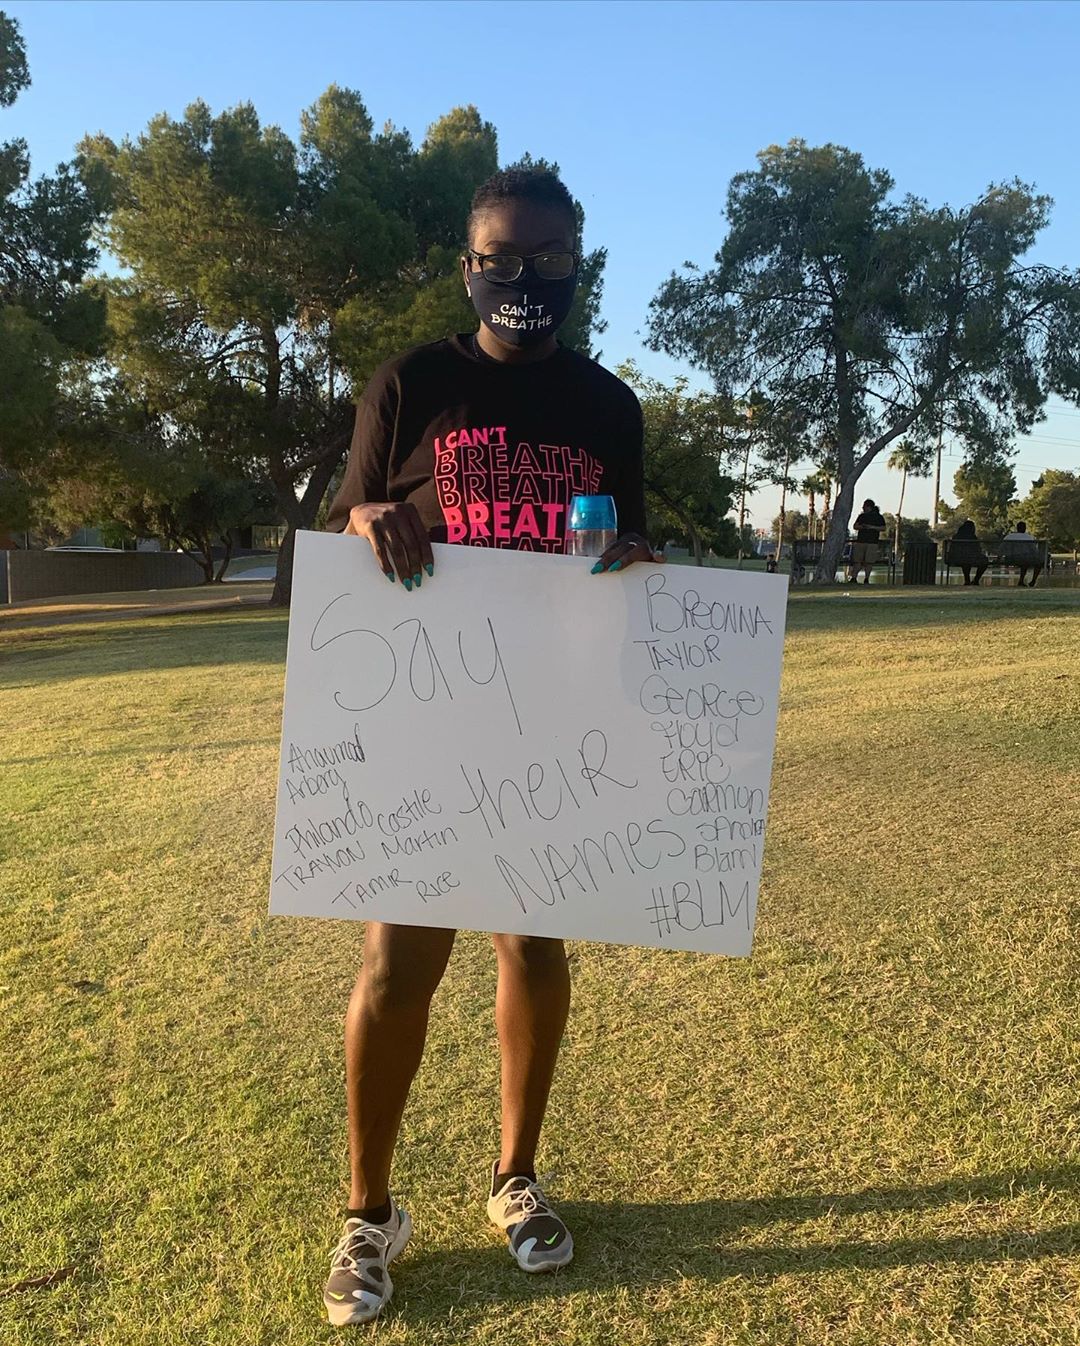 I
CAN'T
BREATHE
I CAN'T
BREATHE
BREATHE
BREAT
BREAT
Say
their
NAMES
Ahaumad
Arbery
Philando Castile
TRAYVON Martin
TAMIR RICE
BREONNA
TAYlOR
GEORGE
Floyd
ERIC
Garmon
SANdRA
Blann
#BLM